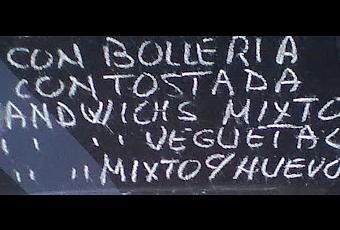 CON BOLLERIA
CON TOSTADA
ANDWICHS MIXTO
" " VEGUETAL
" " MIXTO Y HUEVO